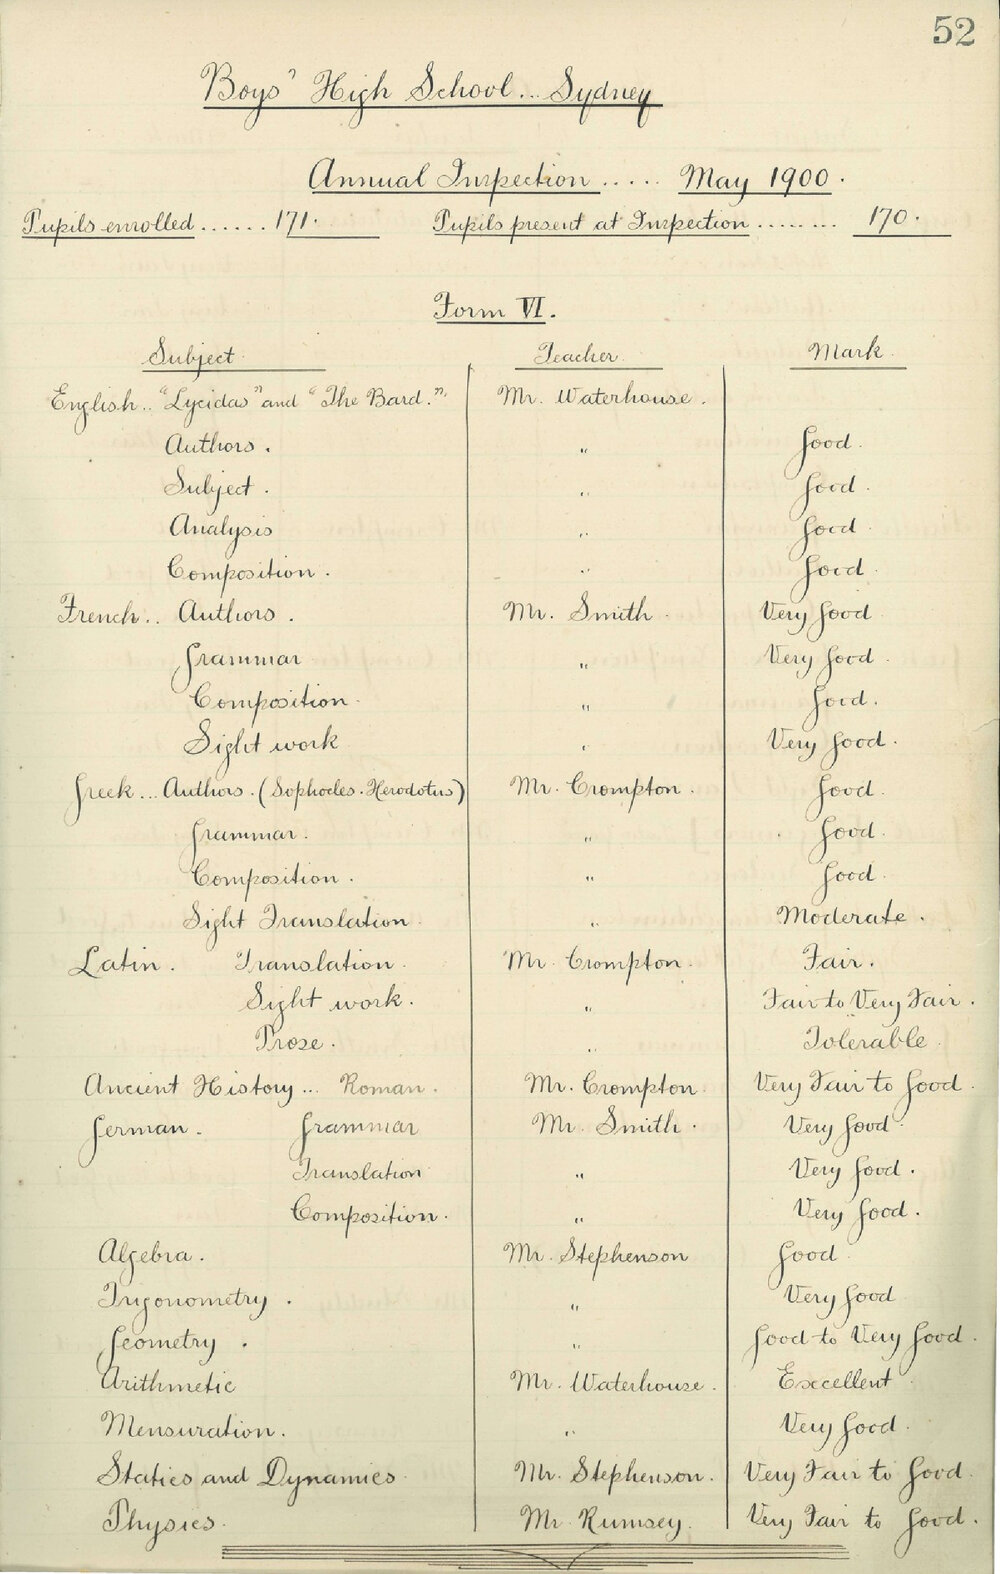 52
Boys' High School... Sydney
Annual Inspection ..... May 1900.
Pupils enrolled ...... 171. Pupils present at Inspection ........ 170.
Form VI.
Subject Teacher. Mark
English.. "Lycidas" and "The Bard." Mr. Waterhouse.
Authors. " Good.
Subject. " Good.
Analysis " Good
Composition. " Good.
French.. Authors. Mr. Smith Very Good
Grammar " Very Good.
Composition. " Good.
Sight work " Very Good.
Greek... Authors. (Sophocles. Herodotus) Mr. Crompton. Good.
Grammar. " Good.
Composition. " Good.
Sight Translation " Moderate.
Latin. Translation. Mr. Crompton. Fair.
Sight work. " Fair to Very Fair.
Prose. " Tolerable.
Ancient History... Roman. Mr. Crompton Very Fair to Good.
German. Grammar Mr. Smith. Very Good.
Translation " Very Good.
Composition. " Very Good.
Algebra. Mr. Stephenson Good
Trigonometry. " Very Good
Geometry. " Good to Very Good.
Arithmetic Mr. Waterhouse. Excellent.
Mensuration. " Very Good.
Statics and Dynamics Mr. Stephenson. Very Fair to Good.
Physics. Mr. Rumsey. Very Fair to Good.